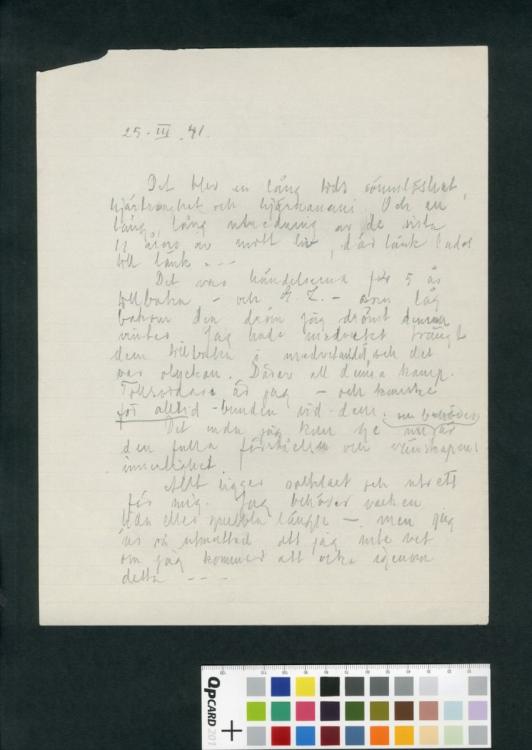 25. III. 41.
Det blev en lång tids sömnlöshet,
hjärtoro och Och en
lång, lång utredning av de sista
12 åren av mitt liv, där länk lades
till länk - - -
Det var händelserna för 5 år
tillbaka - och - som låg
bakom den dröm jag drömt denna
vinter. Jag hade medvetet trängt
dem tillbaka i undermedvetandet, och det
var olyckan. Därav all denna kamp.
Tillsvidare är jag - och kanske
för alltid - bunden vid dem.
Det enda jag kan ge nu är
den fulla förståelsen och vänskapens
innerlighet.
Allt ligger solklart och utrett
för mig. Jag behöver varken
eller längre -, men jag
är så utmattad att jag inte vet
om jag kommer att orka igenom
detta - - - -
QPCARD 201